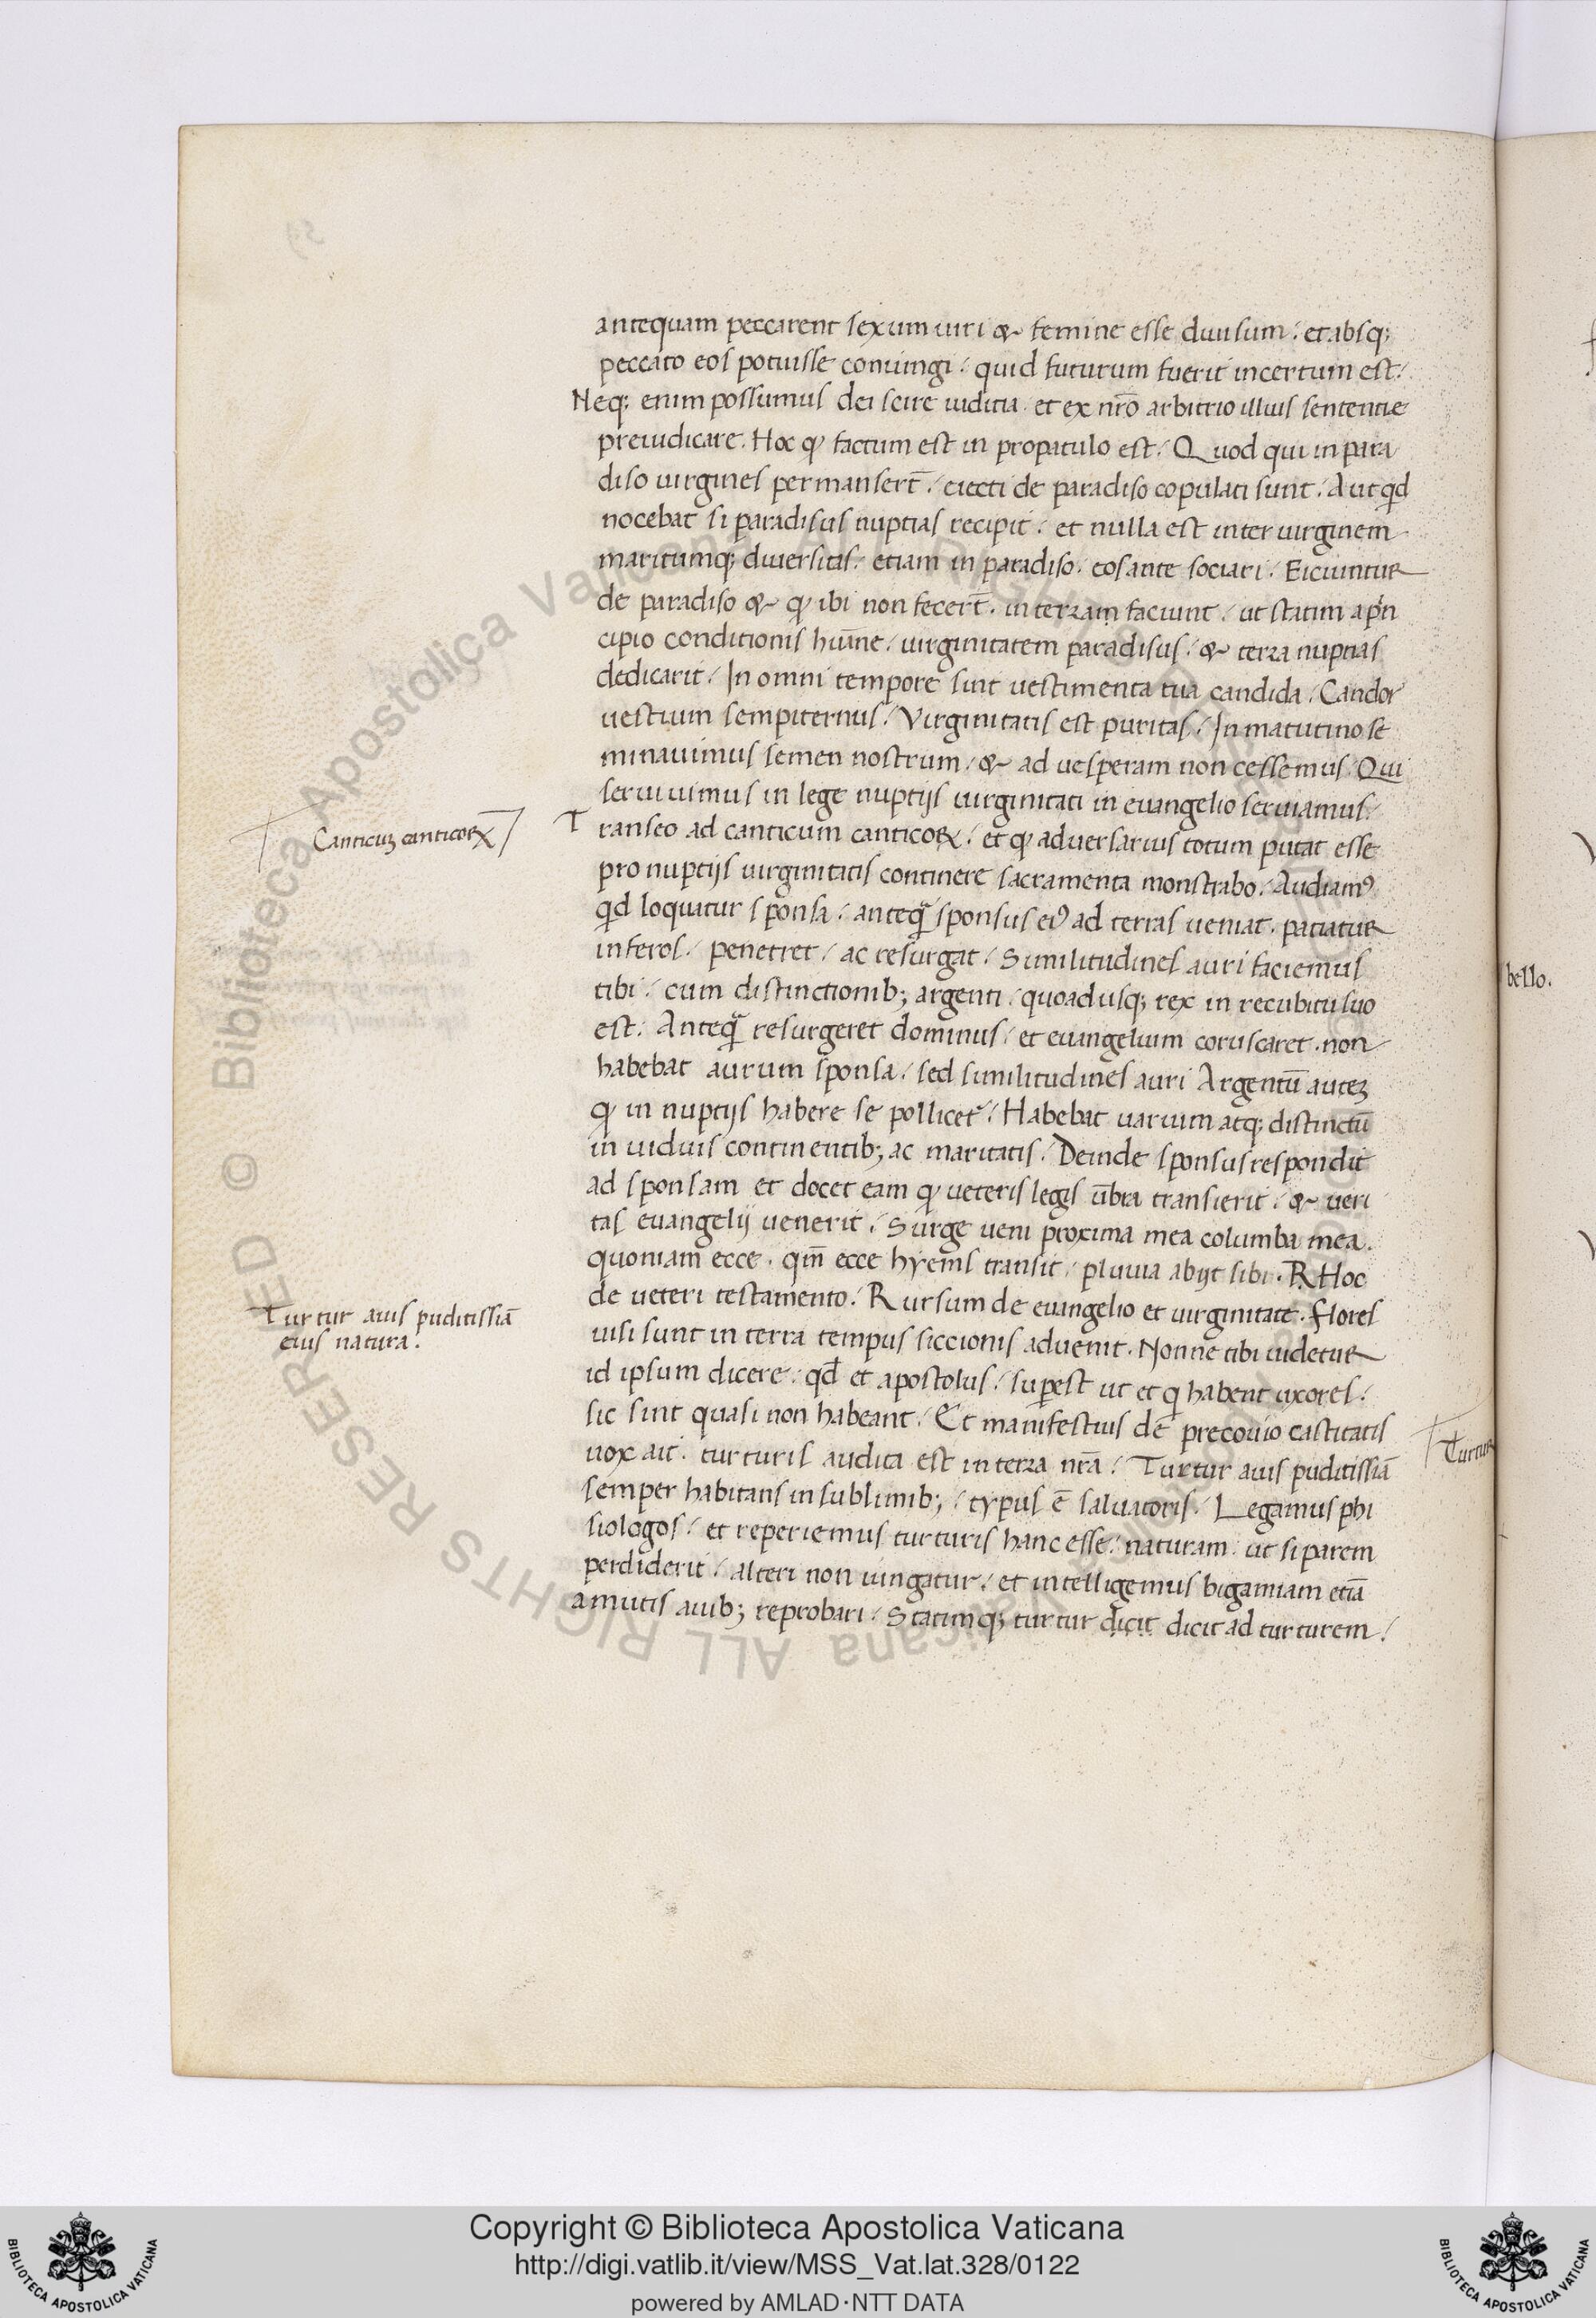 antequam peccarent sexum uiri & femine esse diuisum / et absq;
peccato eos potuisse coniungi / quid futurum fuerit incertum est /
Neq; enim possumus dei scire iuditia et ex nr̄o arbitrio illius sententie
preiudicare. Hoc ꝙ factum est in propatulo est / Quod qui in para
diso uirgines permanserт̄ / eiecti de paradiso copulati sunt / Aut qd
nocebat si paradisus nuptias recipit / et nulla est inter uirginem
maritumq; diuersitas / etiam in paradiso / eos ante sociari / Eiciuntur
de paradiso & ꝙ ibi non fecert̄. in terram faciunt / ut statim a prin
cipio conditionis hūane / uirginitatem paradisus / & terra nuptias
dedicarit / In omni tempore sint uestimenta tua candida / Candor
uestium sempiternus / Virginitatis est puritas / In matutino se
minauimus semen nostrum / & ad uesperam non cessemus / Qui
seruiuimus in lege nuptijs uirginitati in euangelio seruiamus /
Transeo ad canticum canticoꝝ / et ꝙ aduersarius totum putat esse
Canticuꝫ canticoꝝ
pro nuptijs uirginitatis continere sacramenta monstrabo / Audiamꝰ
qd loquatur sponsa / anteꝗ̄ sponsus eiꝰ ad terras ueniat. patiatur
inferos / penetret / ac resurgat / Similitudines auri faciemus
tibi / cum distinctionib; argenti / quoadusq; rex in recubitu suo
est / Anteꝗ̄ resurgeret dominus / et euangelium coruscaret. non
habebat aurum sponsa / sed similitudines auri Argentū auteꝫ
ꝙ in nuptijs habere se pollicet᷑ / Habebat uarium atq; distinctū
in uiduis continentib; ac maritatis / Deinde sponsus respondit
ad sponsam et docet eam ꝙ ueteris legis ūbra transierit / & ueri
tas euangelij uenerit / Surge ueni proxima mea columba mea.
quoniam ecce. qm̄ ecce hyems transit / pluuia abijt sibi. R Hoc
de ueteri testamento. Rursum de euangelio et uirginitate. flores
Turtur auis puditissiā
eius natura.
uisi sunt in terra tempus siccionis aduenit. Nonne tibi uidetur
id ipsum dicere / qd̄ et apostolus / suꝑest ut et ꝗ habent uxores /
sic sint quasi non habeant / Et manifestius de preconio castitatis
uox ait. turturis audita est in terra nr̄a / Turtur auis puditissiā
Turtur
semper habitans in sublimib; / typus ē saluatoris. Legamus phi
siologos / et reperiemus turturis hanc esse / naturam ut si parem
perdiderit / alteri non iungatur / et intelligemus bigamiam etiā
a mutis auib; reprobari / Statimq; turtur dicit dicit ad turturem /
bello.
Biblioteca Apostolica Vaticana ALL RIGHTS RESERVED ©
Copyright © Biblioteca Apostolica Vaticana
http://digi.vatlib.it/view/MSS_Vat.lat.328/0122
powered by AMLAD·NTT DATA
BIBLIOTECA APOSTOLICA VATICANA
BIBLIOTECA APOSTOLICA VATICANA